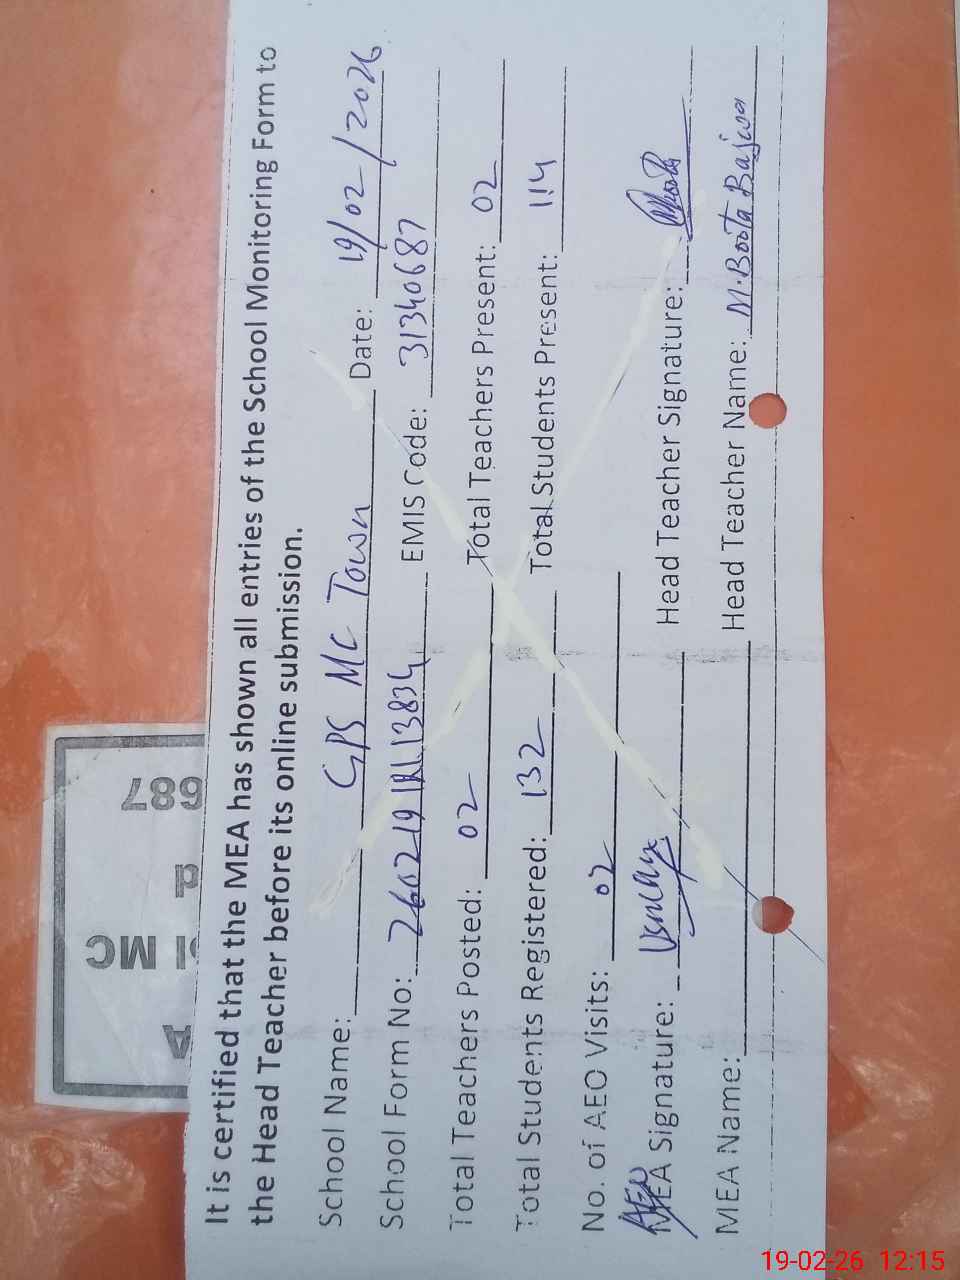 It is certified that the MEA has shown all entries of the School Monitoring Form to
the Head Teacher before its online submission.
School Name: GPS MC Town Date: 19/02/2026
School Form No: 260219 13834 EMIS Code: 31340687
Total Teachers Posted: 02 Total Teachers Present: 02
Total Students Registered: 132 Total Students Present: 114
No. of AEO Visits: 02
MEA Signature: Head Teacher Signature:
MEA Name: Head Teacher Name: M. Boota Bajwa
687
MC
A
19-02-26 12:15